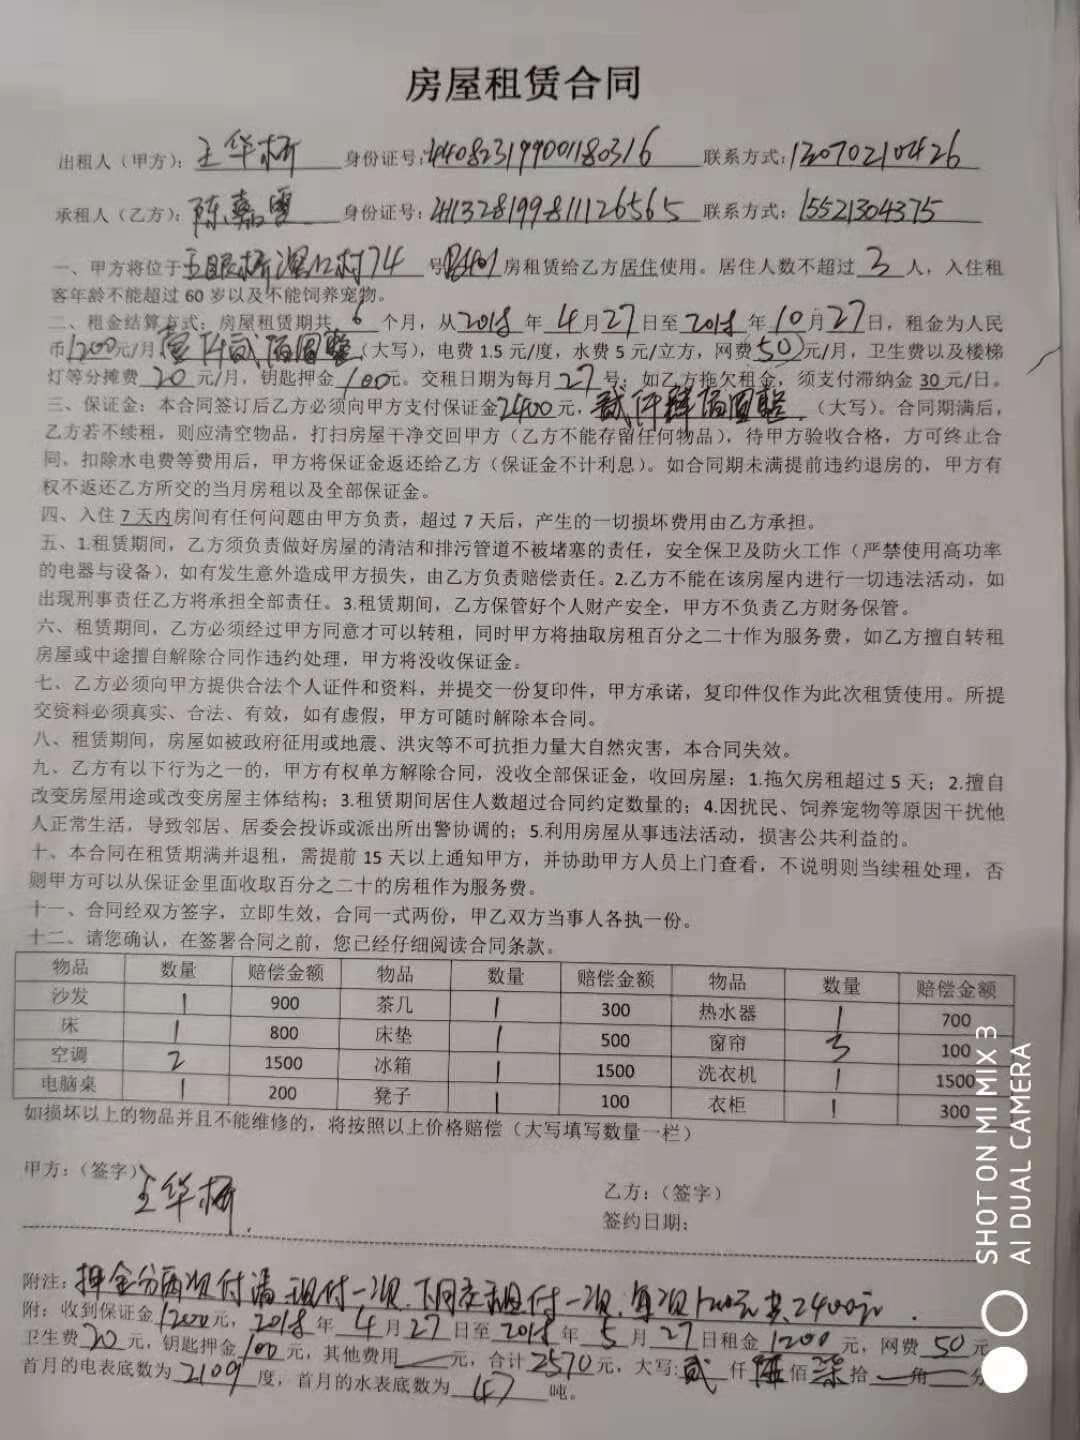 房屋租赁合同
出租人（甲方）：王华桥 身份证号：440823199001180316 联系方式：13070210426
承租人（乙方）：陈嘉雪 身份证号：411328199811126565 联系方式：15521304375
一、甲方将位于五眼桥滘口村74号B401房租赁给乙方居住使用。居住人数不超过3人，入住租
客年龄不能超过 60 岁以及不能饲养宠物。
二、租金结算方式：房屋租赁期共 6 个月，从2018 年 4月27日至2018 年 10月27日，租金为人民
币1200元/月壹仟贰佰圆整（大写），电费 1.5 元/度，水费 5 元/立方，网费50元/月，卫生费以及楼梯
灯等分摊费 20 元/月，钥匙押金 100元。交租日期为每月 27 号；如乙方拖欠租金，须支付滞纳金 30 元/日。
三、保证金：本合同签订后乙方必须向甲方支付保证金2400元，贰仟肆佰圆整.（大写）。合同期满后，
乙方若不续租，则应清空物品，打扫房屋干净交回甲方（乙方不能存留任何物品），待甲方验收合格，方可终止合
同，扣除水电费等费用后，甲方将保证金返还给乙方（保证金不计利息）。如合同期未满提前违约退房的，甲方有
权不返还乙方所交的当月房租以及全部保证金。
四、入住 7 天内房间有任何问题由甲方负责，超过 7 天后，产生的一切损坏费用由乙方承担。
五、1.租赁期间，乙方须负责做好房屋的清洁和排污管道不被堵塞的责任，安全保卫及防火工作（严禁使用高功率
的电器与设备），如有发生意外造成甲方损失，由乙方负责赔偿责任。2.乙方不能在该房屋内进行一切违法活动，如
出现刑事责任乙方将承担全部责任。3.租赁期间，乙方保管好个人财产安全，甲方不负责乙方财务保管。
六、租赁期间，乙方必须经过甲方同意才可以转租，同时甲方将抽取房租百分之二十作为服务费，如乙方擅自转租
房屋或中途擅自解除合同作违约处理，甲方将没收保证金。
七、乙方必须向甲方提供合法个人证件和资料，并提交一份复印件，甲方承诺，复印件仅作为此次租赁使用。所提
交资料必须真实、合法、有效，如有虚假，甲方可随时解除本合同。
八、租赁期间，房屋如被政府征用或地震、洪灾等不可抗拒力量大自然灾害，本合同失效。
九、乙方有以下行为之一的，甲方有权单方解除合同，没收全部保证金，收回房屋：1.拖欠房租超过 5 天；2.擅自
改变房屋用途或改变房屋主体结构；3.租赁期间居住人数超过合同约定数量的；4.因扰民、饲养宠物等原因干扰他
人正常生活，导致邻居、居委会投诉或派出所出警协调的；5.利用房屋从事违法活动，损害公共利益的。
十、本合同在租赁期满并退租，需提前 15 天以上通知甲方，并协助甲方人员上门查看，不说明则当续租处理，否
则甲方可以从保证金里面收取百分之二十的房租作为服务费。
十一、合同经双方签字，立即生效，合同一式两份，甲乙双方当事人各执一份。
十二、请您确认，在签署合同之前，您已经仔细阅读合同条款。
物品 数量 赔偿金额 物品 数量 赔偿金额 物品 数量 赔偿金额
沙发 1 900 茶几 1 300 热水器 1 700
床 1 800 床垫 1 500 窗帘 3 100
空调 2 1500 冰箱 1 1500 洗衣机 1 1500
电脑桌 1 200 凳子 1 100 衣柜 1 300
如损坏以上的物品并且不能维修的，将按照以上价格赔偿（大写填写数量一栏）
甲方：（签字）王华桥. 乙方：（签字）
签约日期：
附注：押金分两次付清 现付一次.下月交租付一次.每次1200元 共2400元.
附：收到保证金1200元，2018 年 4 月27日至2018年 5 月 27日租金 1200 元，网费 50 元
卫生费20 元，钥匙押金100元，其他费用 元，合计2570元，大写：贰 仟 伍 佰 柒 拾 角 分
首月的电表底数为 2109 度，首月的水表底数为 47 吨。
SHOT ON MI MIX 3
AI DUAL CAMERA